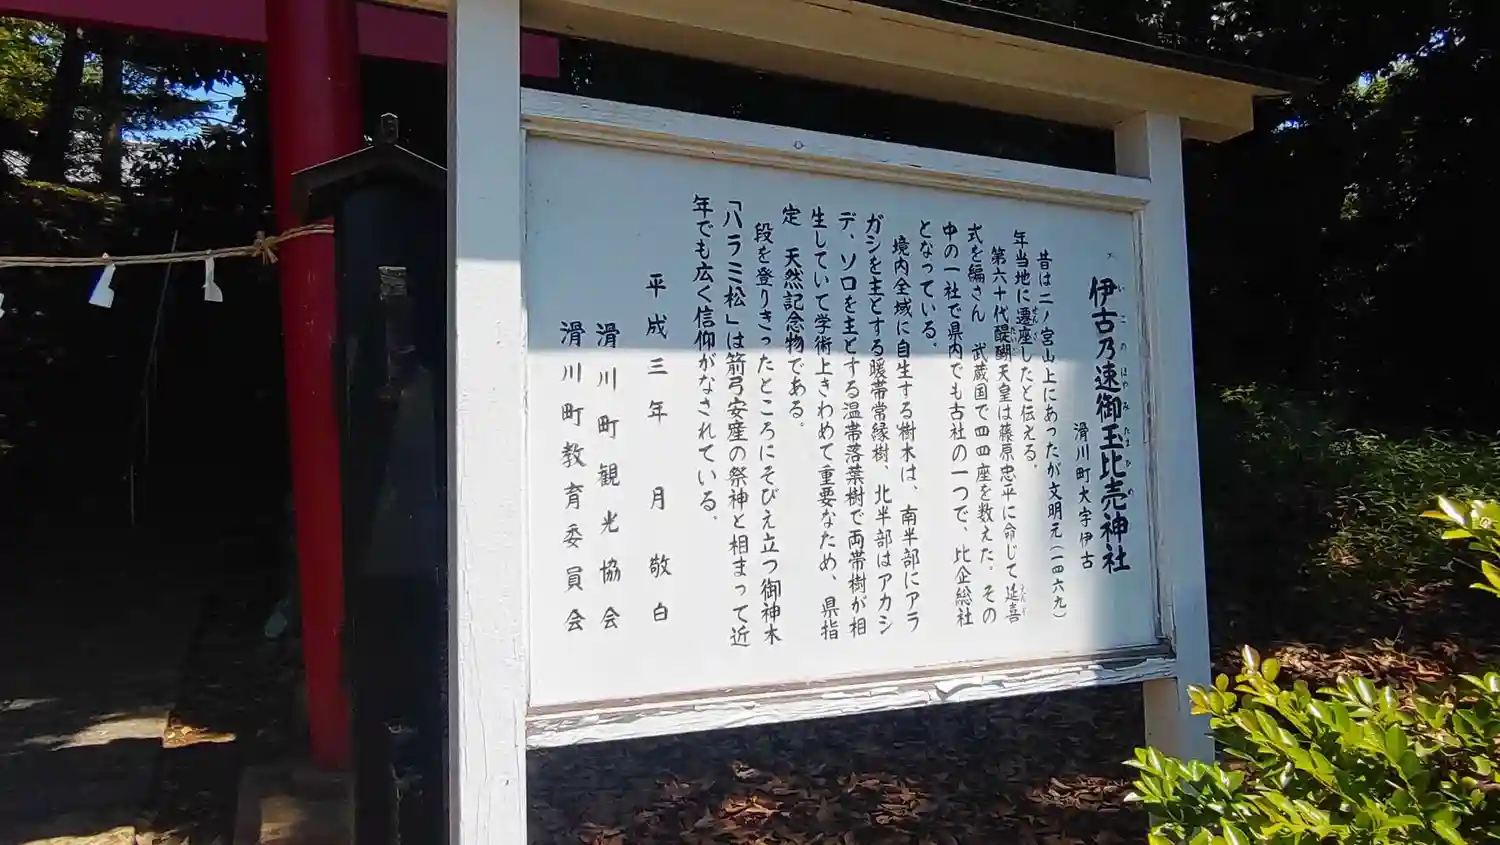 伊古乃速御玉比売神社
いこのはやみたまひめ
滑川町大字伊古
昔は二ノ宮山上にあったが文明元(一四六九)
年当地に遷座したと伝える。
第六十代醍醐天皇は藤原忠平に命じて延喜
式を編さん 武蔵国で四四座を数えた。その
中の一社で県内でも古社の一つで、比企総社
となっている。
境内全域に自生する樹木は、南半部にアラ
ガシを主とする暖帯常緑樹、北半部はアカシ
デ、ソロを主とする温帯落葉樹で両帯樹が相
生していて学術上きわめて重要なため、県指
定 天然記念物である。
段を登りきったところにそびえ立つ御神木
「ハラミ松」は箭弓安産の祭神と相まって近
年でも広く信仰がなされている。
平成三年 月 敬白
滑川町観光協会
滑川町教育委員会